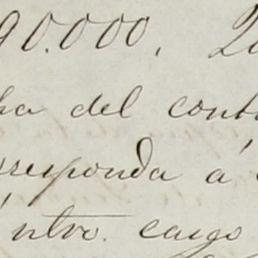 90.000,
del
responda á
ntro. cargo